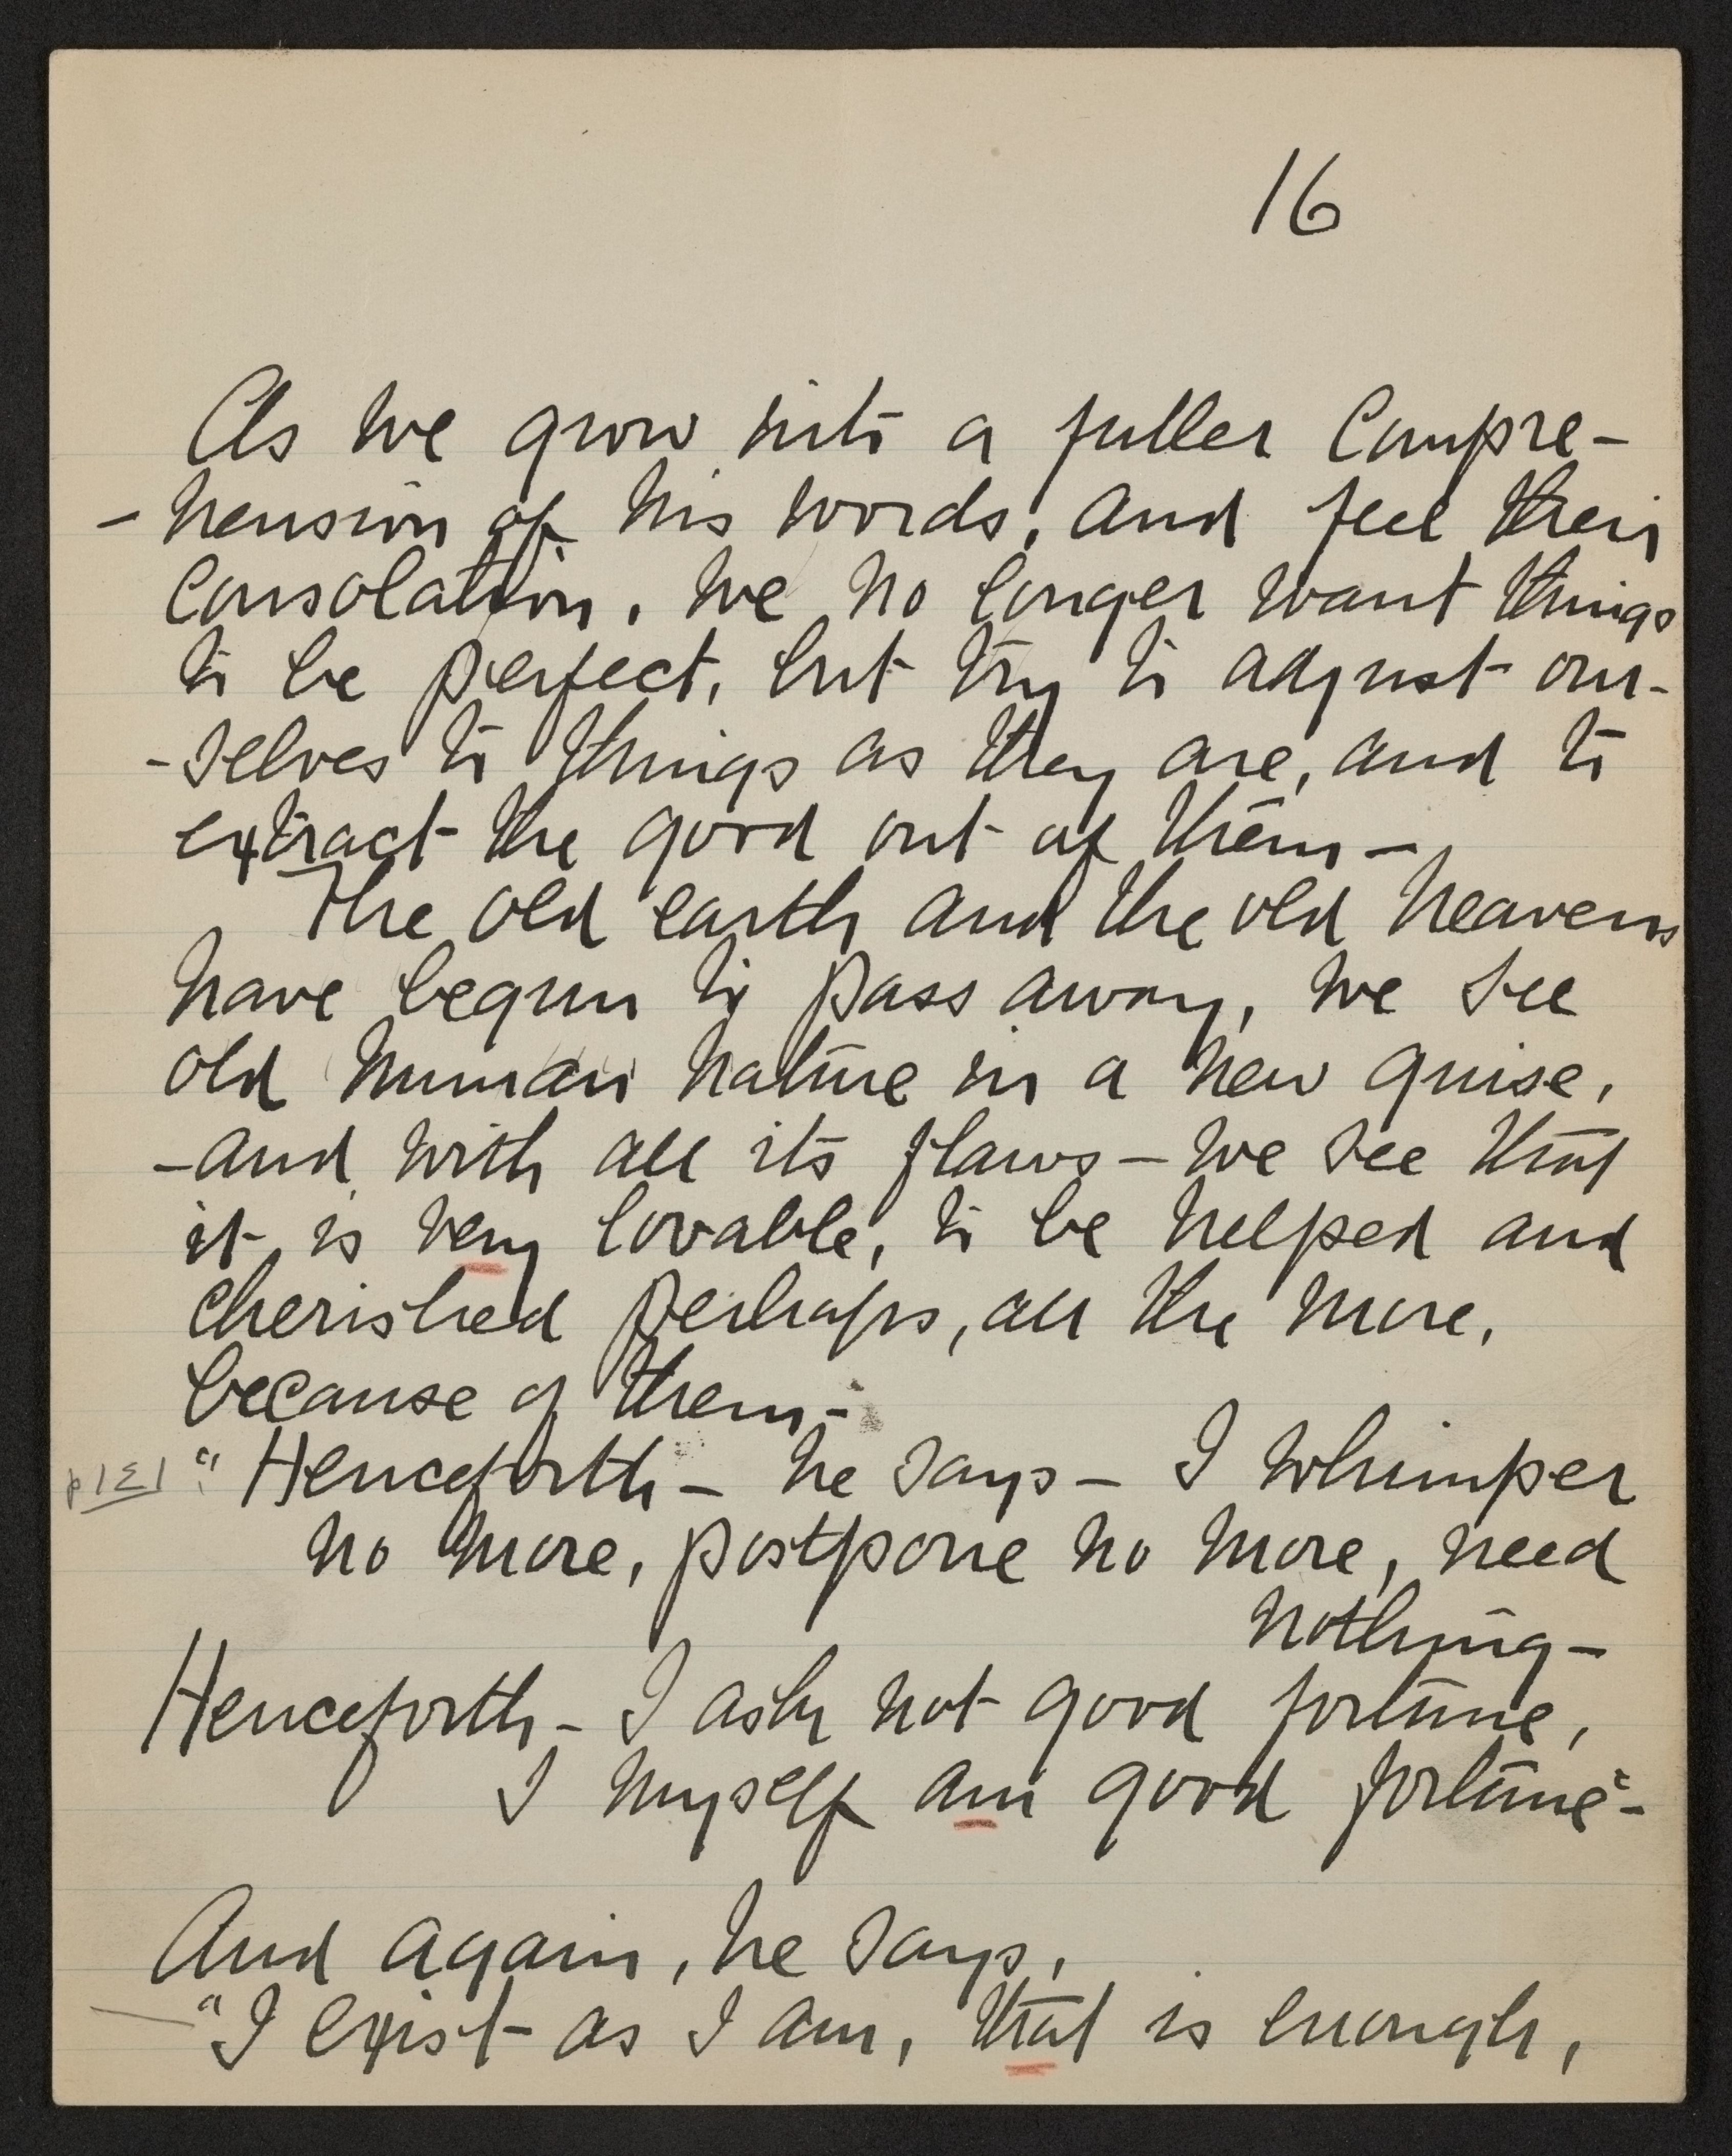 16
As we grow into a fuller Compre-
-hension of his words, and feel their
Consolation, we no longer want things
to be perfect, but try to adjust our-
-selves to things as they are, and to
extract the good out of them -
The old earth and the old heavens
have begun to pass away, we see
old human nature in a new guise,
- and with all its flaws - we see that
it is very lovable, to be helped and
cherished perhaps, all the more,
because of them -
p 121 "Henceforth - he says - I whimper
no more, postpone no more, need
nothing -
Henceforth - I ask not good fortune,
I myself am good fortune" -
And again, he says,
"I exist as I am, that is enough,